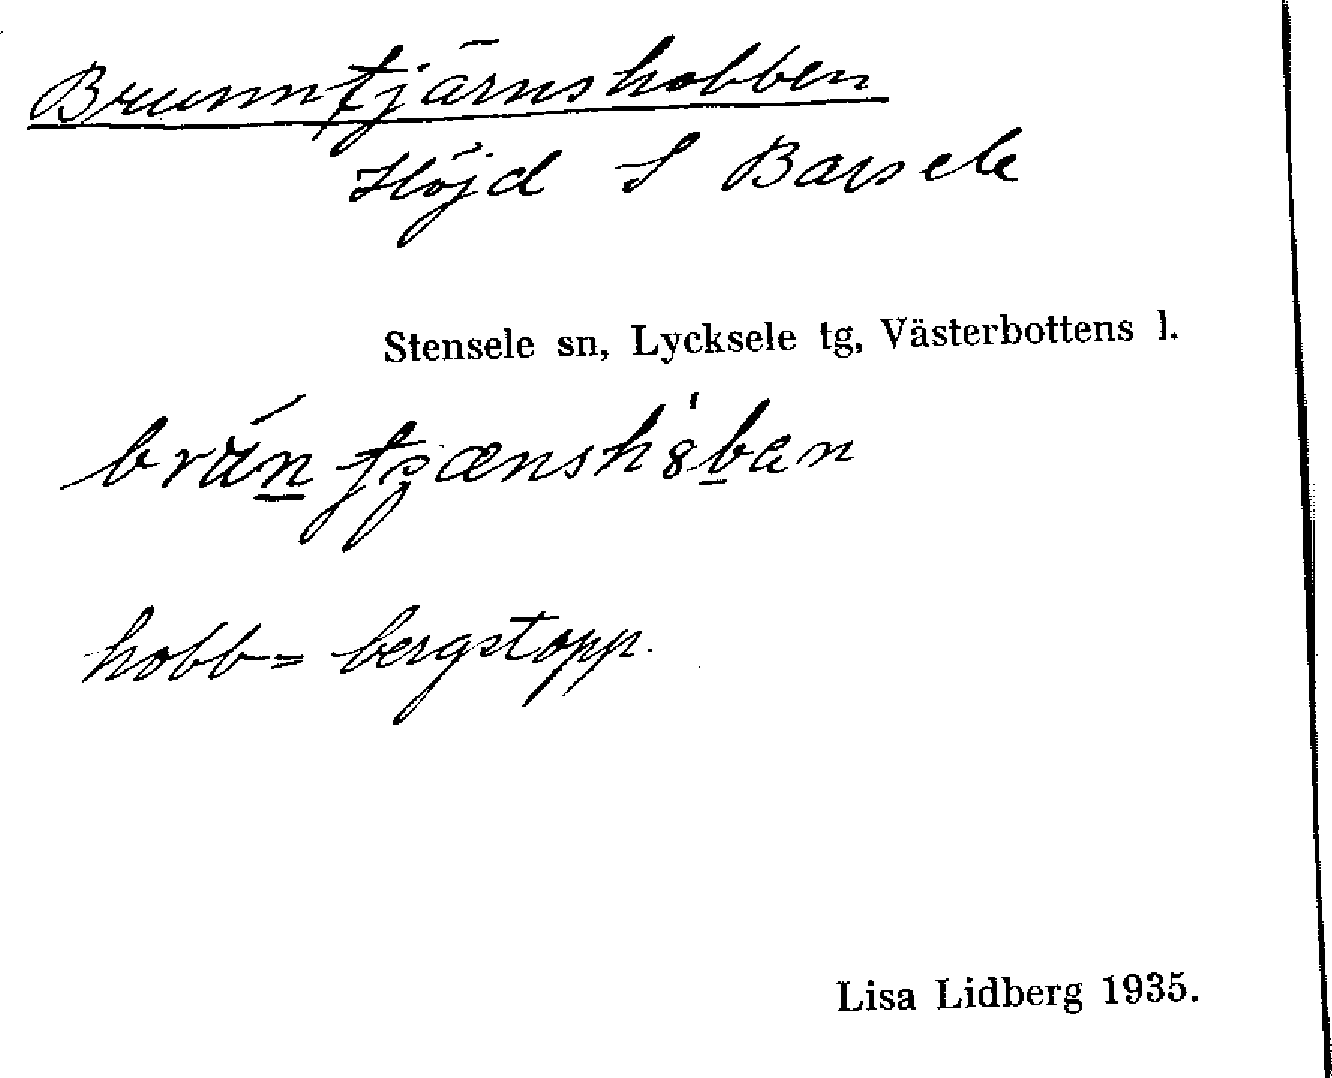 Brunntjärnshobben
Höjd S Barsele
Stensele sn, Lycksele tg, Västerbottens l.
hobb = bergstopp.
Lisa Lidberg 1935.